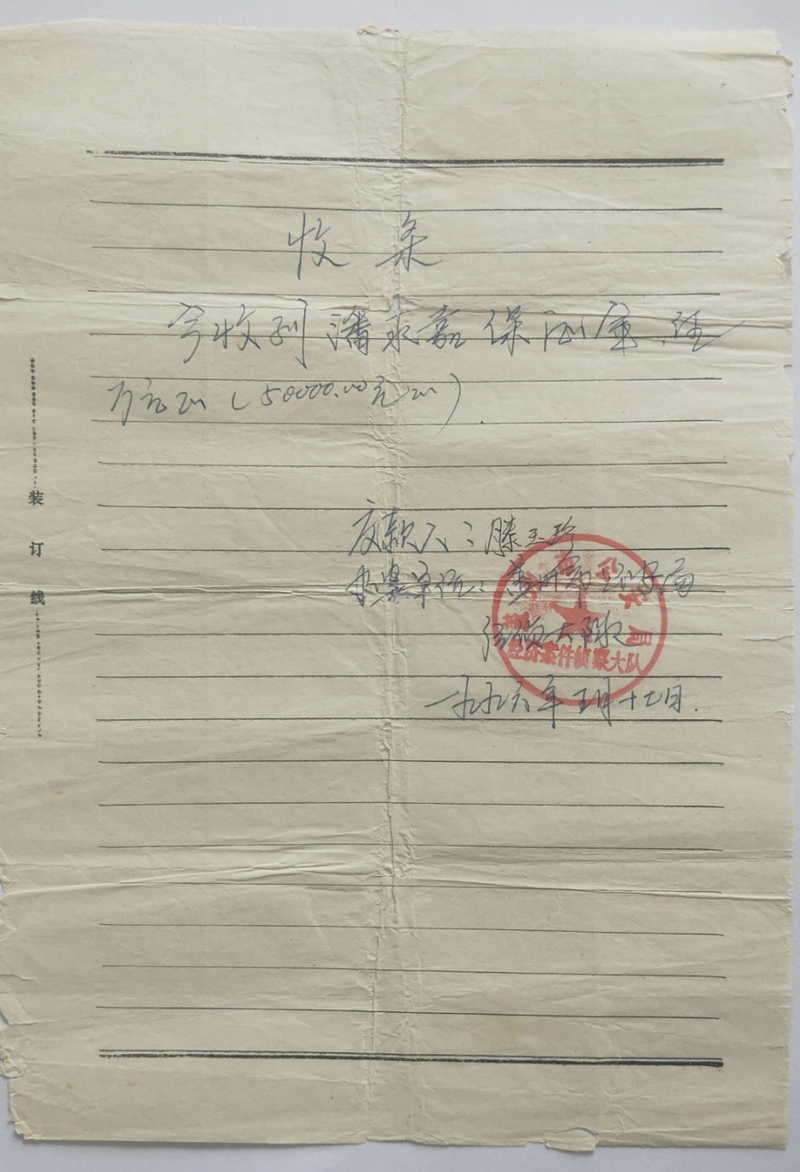 收条
今收到潘永嘉保证金伍
万元正(50000.00元正)
交款人:滕玉珍
办案单位: 州市公安局
经侦大队
一九九六年 月十七日.
公安局
经济案件侦察大队
装订线